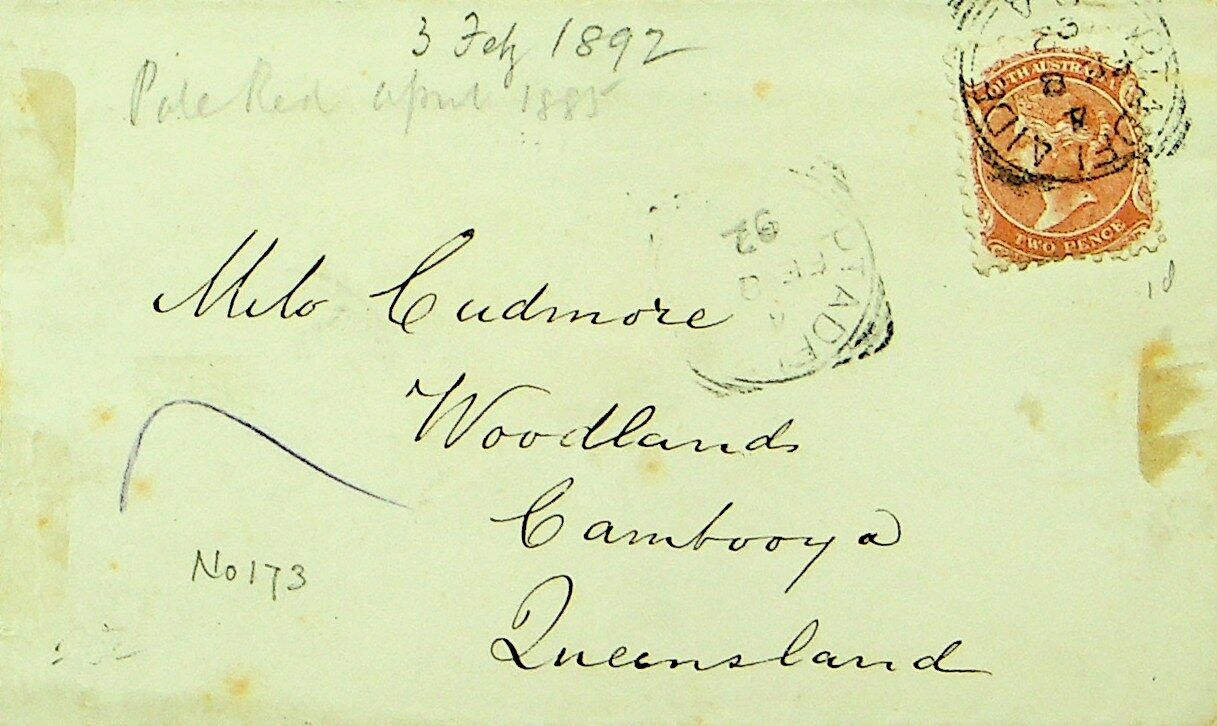 3 Feby 1892
Pale Red April 1885
SOUTH AUSTRALIA
TWO PENCE
ADELAIDE
92
Milo Cudmore
Woodlands
Cambooya
Queensland
No 173